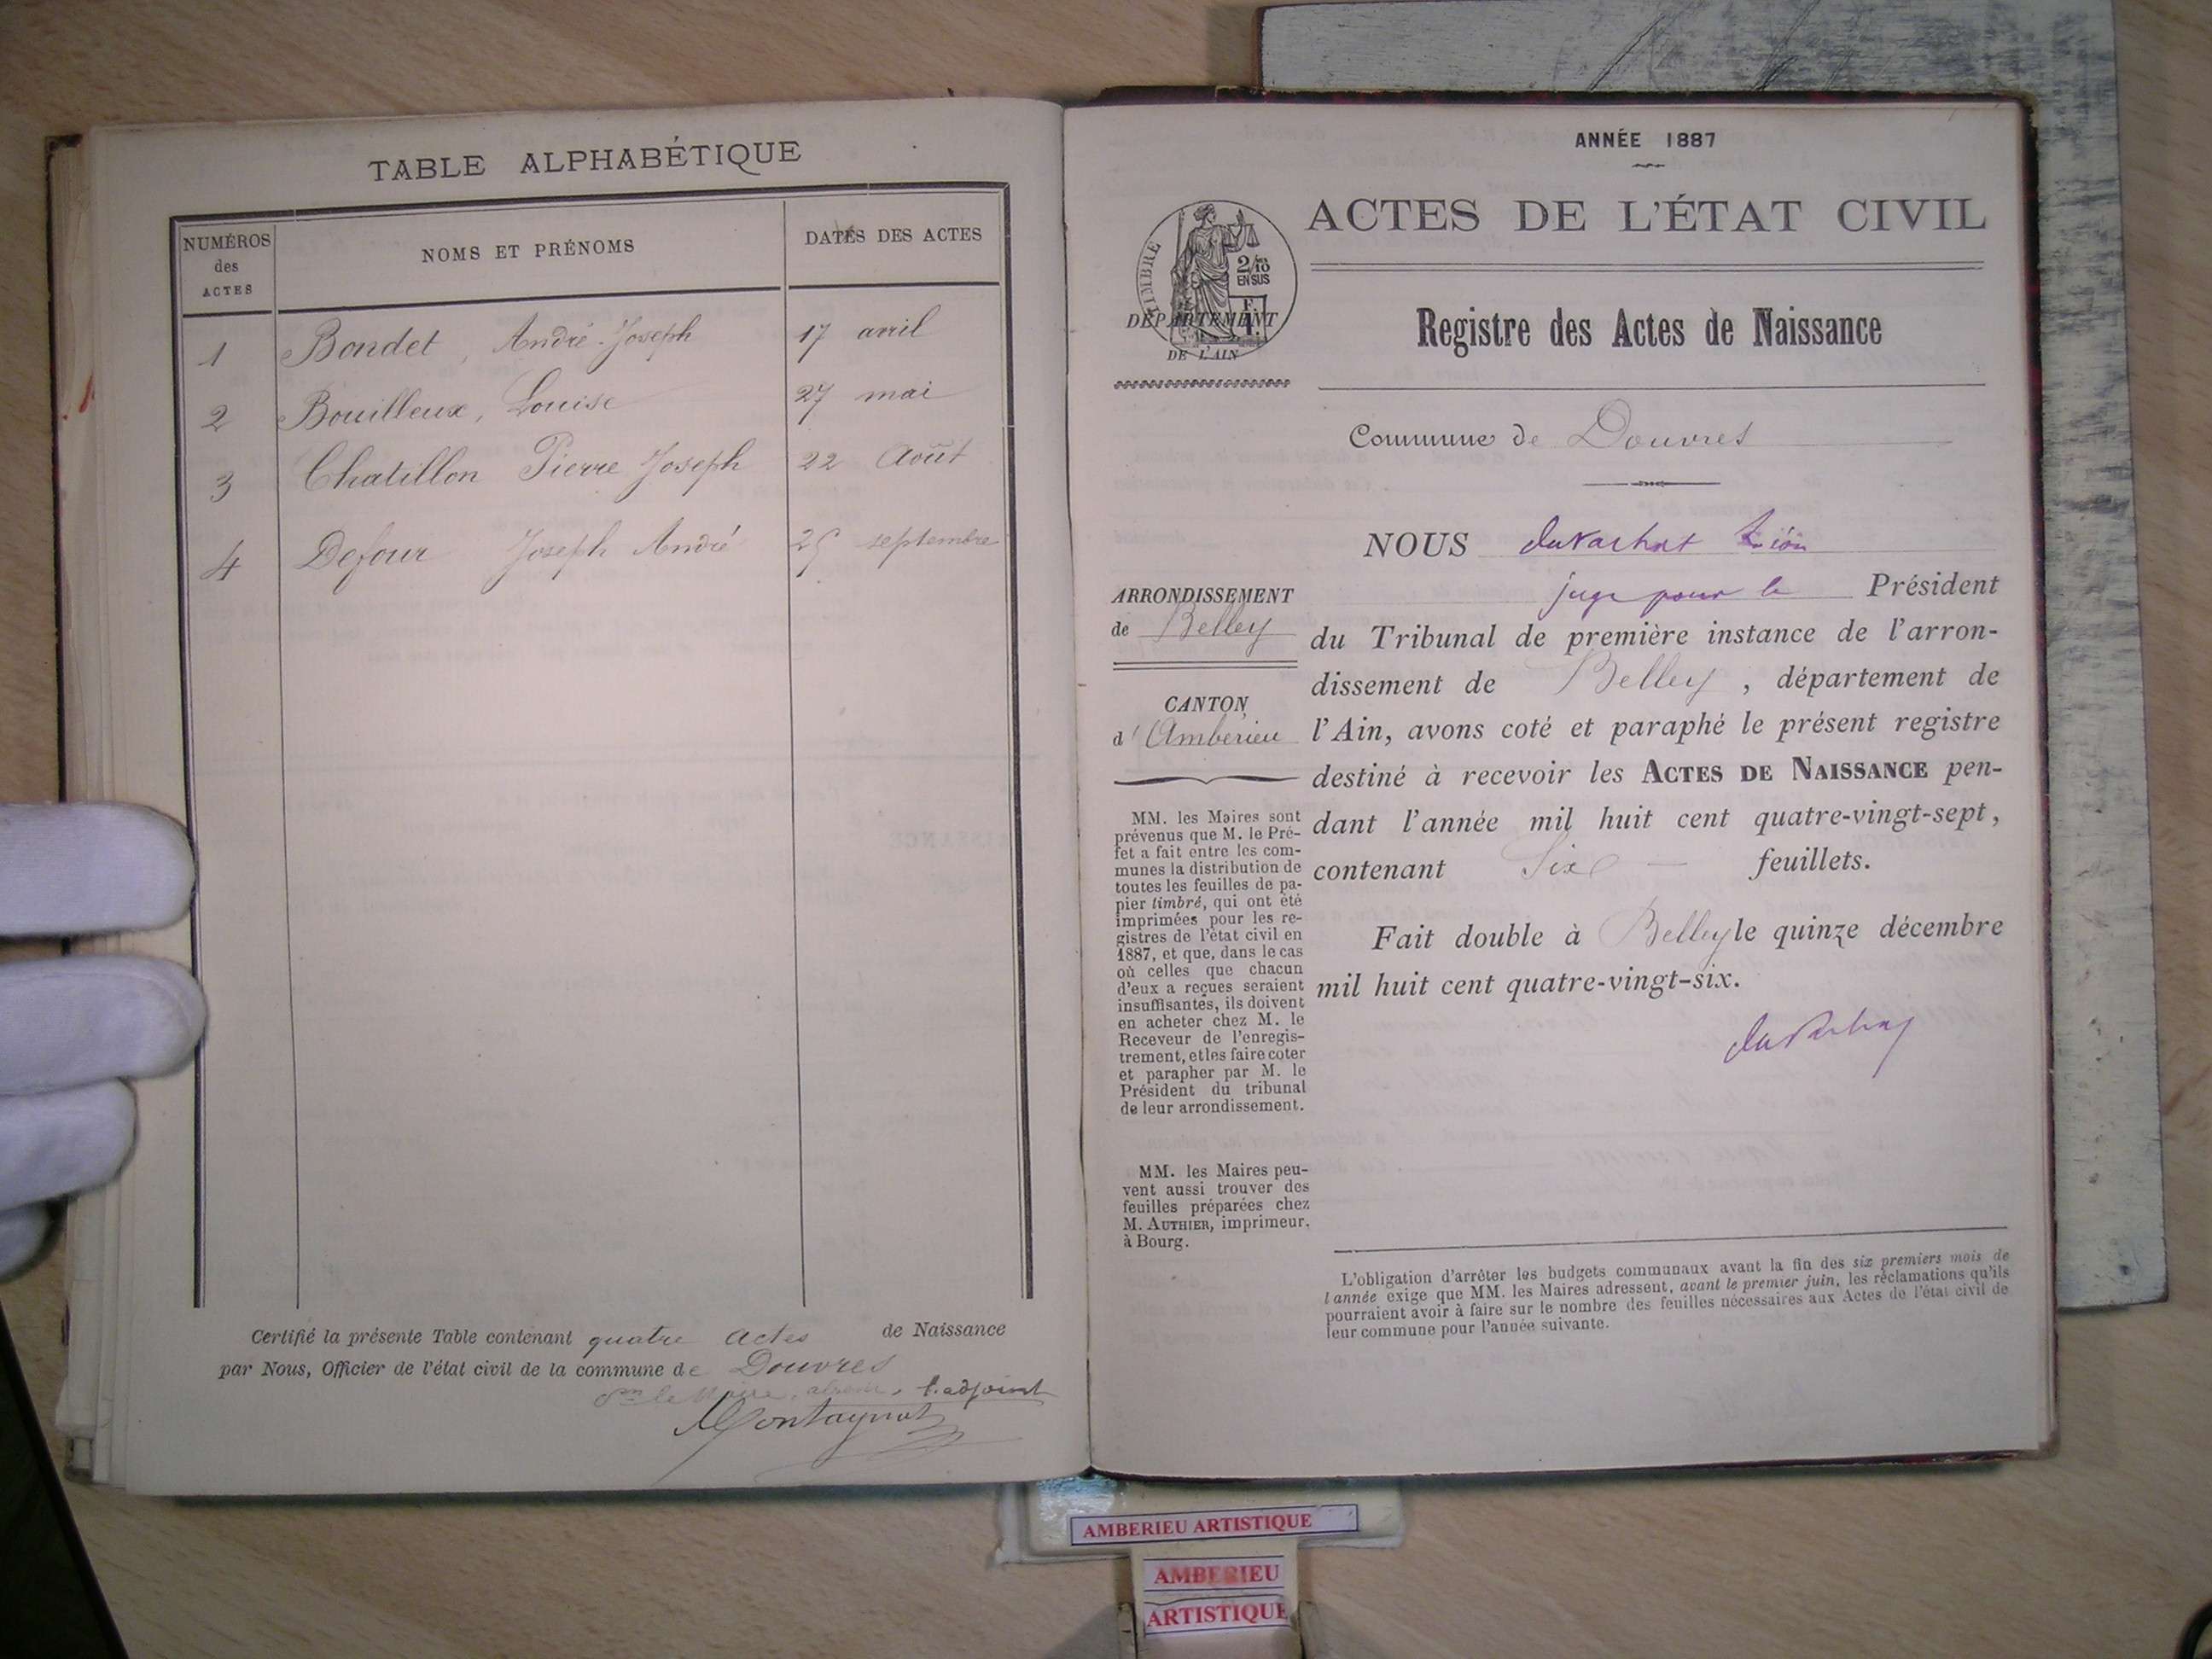 TABLE ALPHABÉTIQUE
NUMÉROS
des
ACTES
NOMS ET PRÉNOMS
DATES DES ACTES
1 Bondet, André-Joseph 17 avril
2 Bouilleux, Louise 27 mai
3 Chatillon Pierre Joseph 22 Août
4 Defour Joseph André 25 septembre
Certifié la présente Table contenant quatre actes de Naissance
par Nous, Officier de l'état civil de la commune de Douvres
le Maire, absent, l'adjoint
Montagnat
ANNÉE 1887
ACTES DE L'ÉTAT CIVIL
TIMBRE
2/10
EN SUS
DÉPARTEMENT
DE L'AIN
Registre des Actes de Naissance
Commune de Douvres
ARRONDISSEMENT
de Belley
CANTON
d'Ambérieu
MM. les Maires sont
prévenus que M. le Pré-
fet a fait entre les com-
munes la distribution de
toutes les feuilles de pa-
pier timbré, qui ont été
imprimées pour les re-
gistres de l'état civil en
1887, et que, dans le cas
où celles que chacun
d'eux a reçues seraient
insuffisantes, ils doivent
en acheter chez M. le
Receveur de l'enregis-
trement, et les faire coter
et parapher par M. le
Président du tribunal
de leur arrondissement.
MM. les Maires peu-
vent aussi trouver des
feuilles préparées chez
M. AUTHIER, imprimeur,
à Bourg.
NOUS
juge pour le Président
du Tribunal de première instance de l'arron-
dissement de Belley, département de
l'Ain, avons coté et paraphé le présent registre
destiné à recevoir les ACTES DE NAISSANCE pen-
dant l'année mil huit cent quatre-vingt-sept,
contenant Six feuillets.
Fait double à Belley le quinze décembre
mil huit cent quatre-vingt-six.
L'obligation d'arrêter les budgets communaux avant la fin des six premiers mois de
l'année exige que MM. les Maires adressent, avant le premier juin, les réclamations qu'ils
pourraient avoir à faire sur le nombre des feuilles nécessaires aux Actes de l'état civil de
leur commune pour l'année suivante.
AMBERIEU ARTISTIQUE
AMBERIEU
ARTISTIQUE